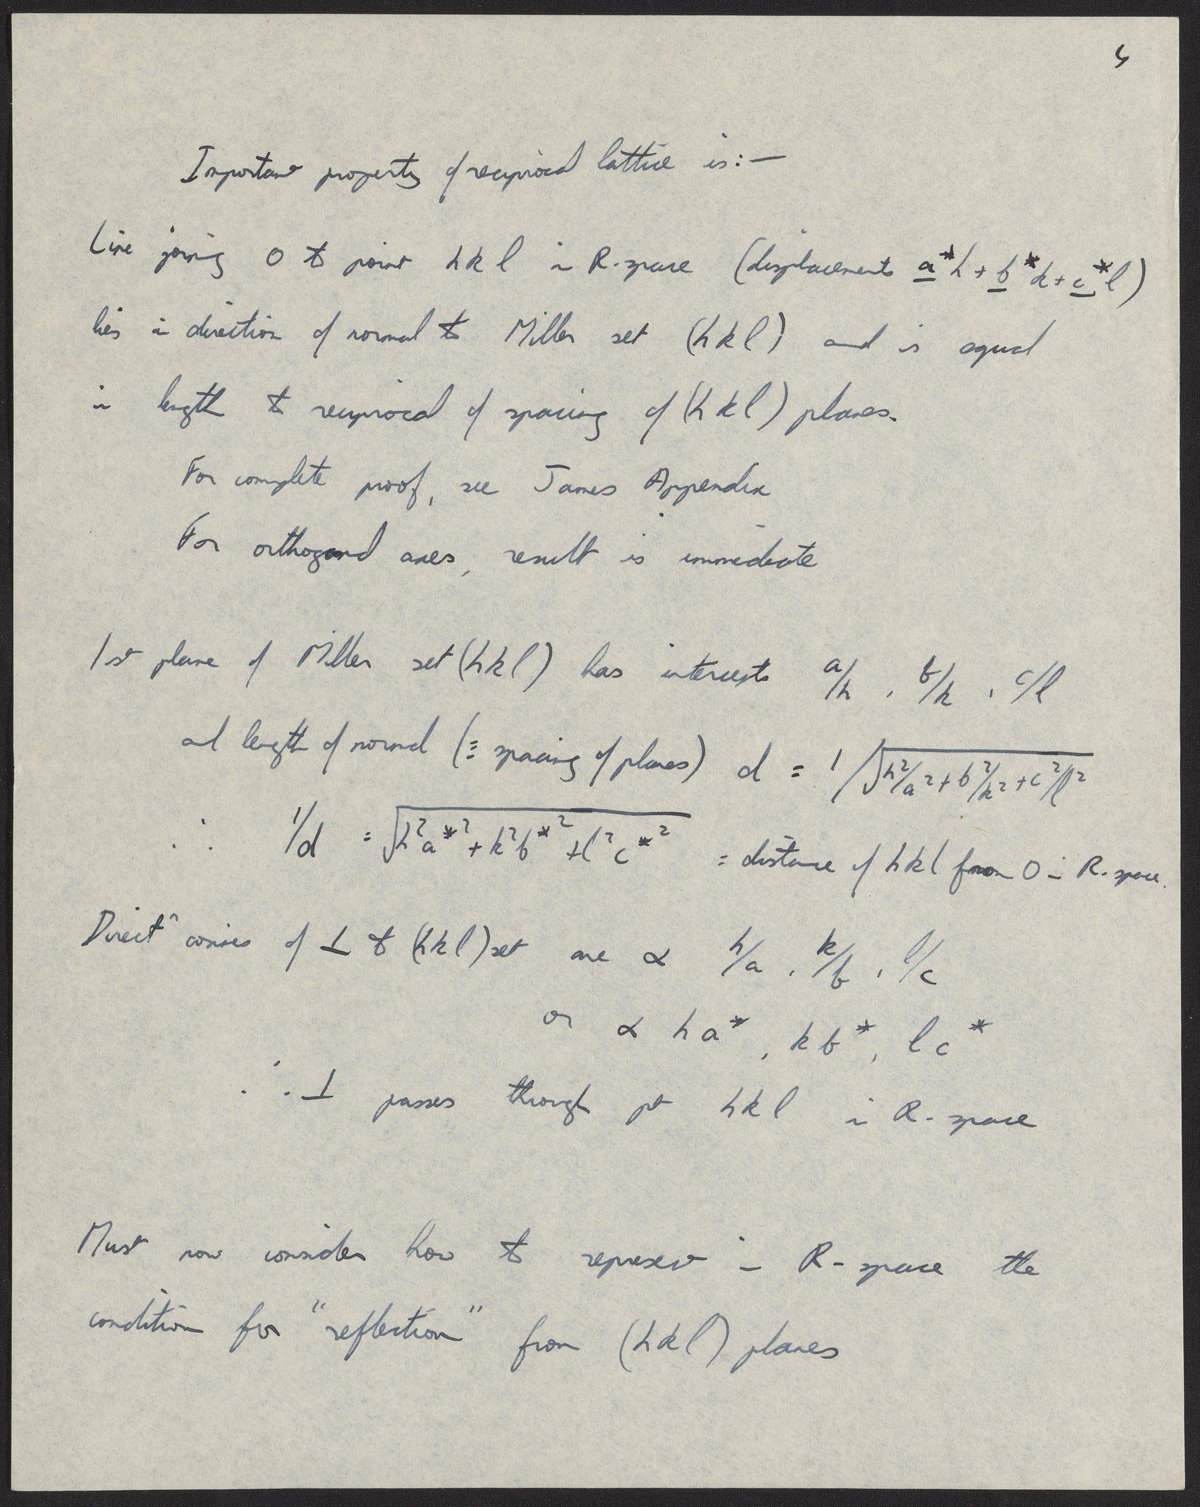 Important property of reciprocal lattice is:—
Line joining O to point hkl in R-space (displacement a*h + b*k + c*l)
lies in direction of normal to Miller set (hkl) and is equal
in length to reciprocal of spacing of (hkl) planes.
For complete proof, see James Appendix
For orthogonal axes, result is immediate
1st plane of Miller set (hkl) has intercepts a/h, b/k, c/l
and length of normal (≡ spacing of planes) d = 1/√h²/a² + b²/k² + c²/l²
∴ 1/d = √h²a*² + k²b*² + l²c*² = distance of hkl from O in R-space.
Direct^n cosines of ⊥ to (hkl) set are ∝ h/a, k/b, l/c
or ∝ ha*, kb*, lc*
∴ ⊥ passes through pt hkl in R-space
Must now consider how to represent in R-space the
condition for "reflection" from (hkl) planes